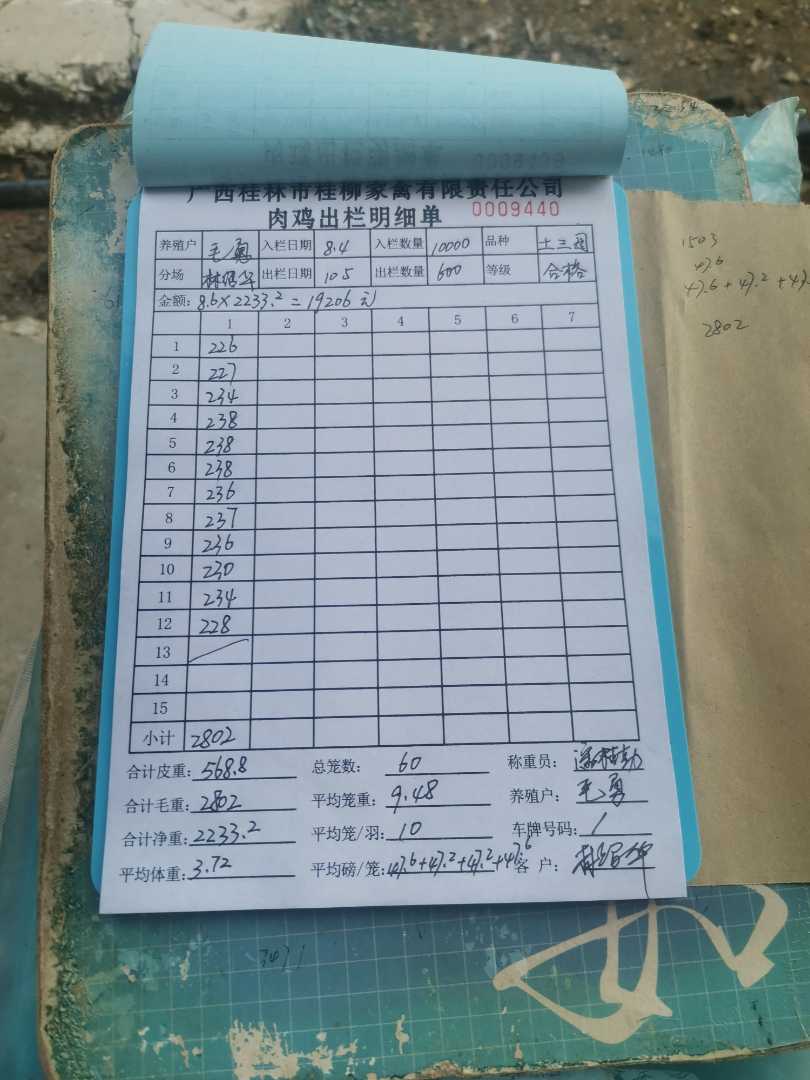 广西桂林市桂柳家禽有限责任公司
肉鸡出栏明细单 0009440
养殖户 毛勇 入栏日期 8.4 入栏数量 10000 品种 土三园
分场 出栏日期 10.5 出栏数量 600 等级 合格
金额: 8.6×2233.2=19206元
1 2 3 4 5 6 7
1 226
2 227
3 234
4 238
5 238
6 238
7 236
8 237
9 236
10 230
11 234
12 228
13
14
15
小计 2802
合计皮重: 568.8 总笼数: 60 称重员:
合计毛重: 2802 平均笼重: 9.48 养殖户: 毛勇
合计净重: 2233.2 平均笼/羽: 10 车牌号码: /
平均体重: 3.72 平均磅/笼: 47.6+47.2+47.2+47.6 客户:
1503
47.6
47.6+47.2+47.
2802